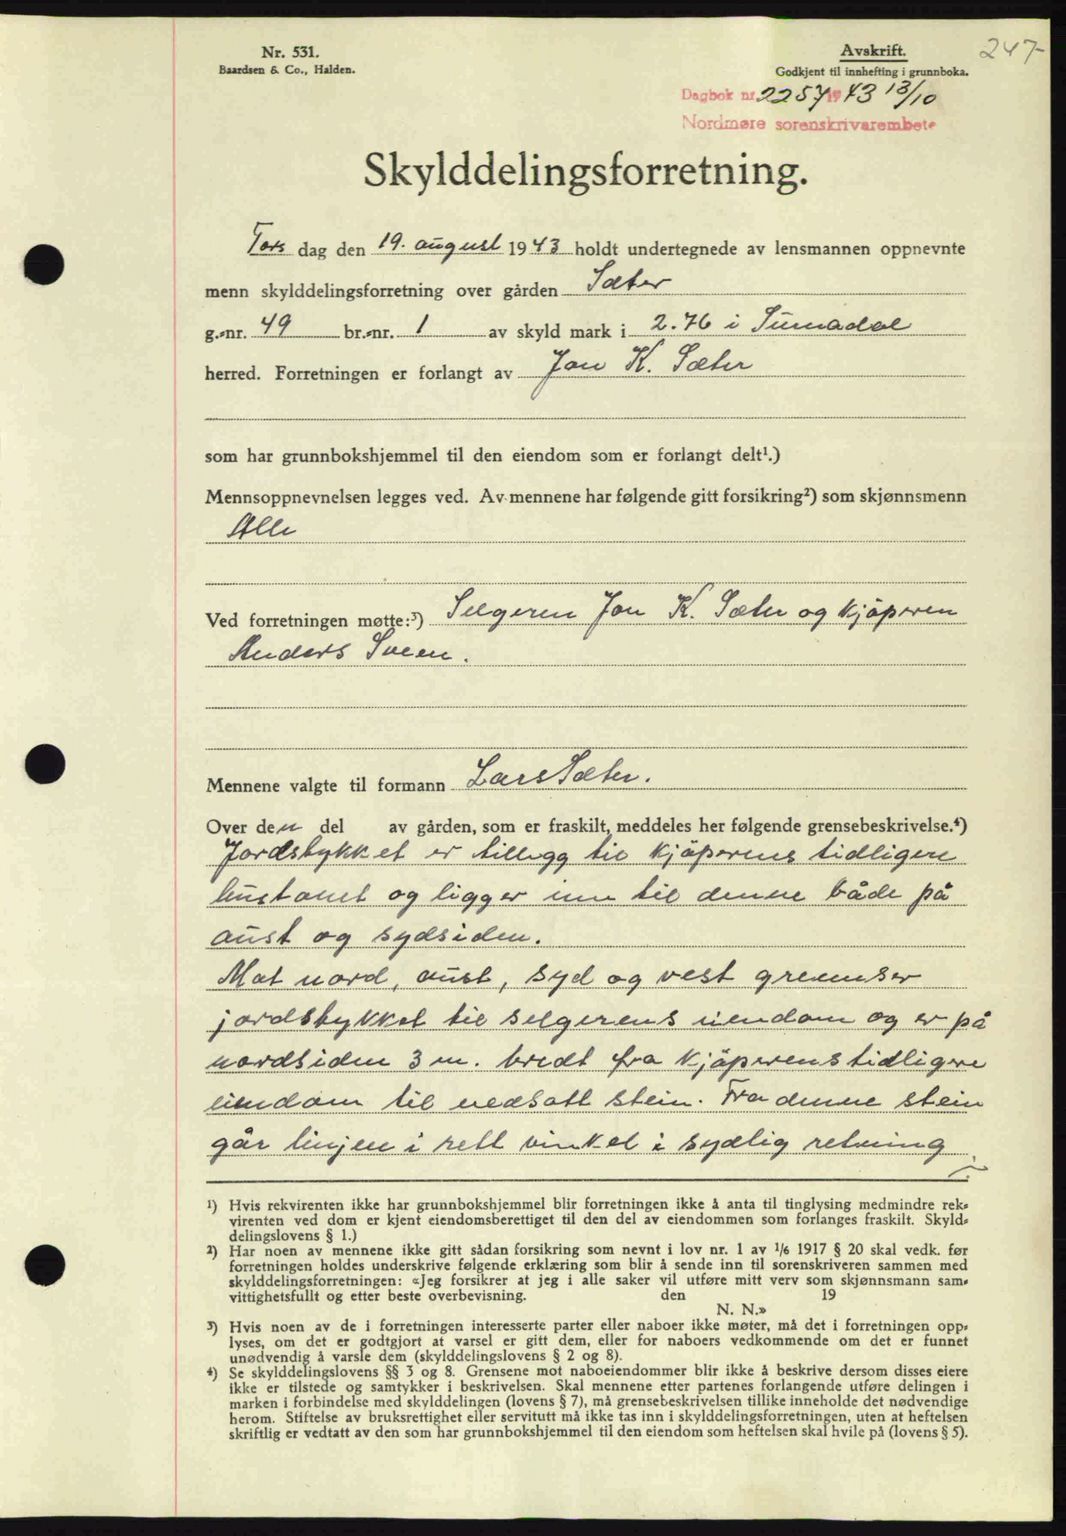 247-
Nr. 531.
Baardsen & Co., Halden.
Avskrift.
Godkjent til innhefting i grunnboka.
Dagbok nr. 2257 1943 13/10
Nordmøre sorenskriverembete
Skylddelingsforretning.
Tors dag den 19. august 1943 holdt undertegnede av lensmannen oppnevnte
menn skylddelingsforretning over gården Sæter
g.-nr. 49 br.-nr. 1 av skyld mark i 2.76 i Surnadal
herred. Forretningen er forlangt av Jon K. Sæter
som har grunnbokshjemmel til den eiendom som er forlangt delt¹.)
Mennsoppnevnelsen legges ved. Av mennene har følgende gitt forsikring²) som skjønnsmenn
Alle
Ved forretningen møtte:³) Selgeren Jon K. Sæter og kjöperen
Anders Sveen.
Mennene valgte til formann Lars Sæter.
Over den del av gården, som er fraskilt, meddeles her følgende grensebeskrivelse.⁴)
Jordstykket er tillegg til kjöperens tidligere
bustomt og ligger inn til denne både på
aust og sydsiden.
Mot nord, aust, syd og vest grenser
jordstykket til selgerens eiendom og er på
nordsiden 3 m. bredt fra kjöperens tidligere
eiendom til nedsatt stein. Fra denne stein
går linjen i rett vinkel i sydlig retning
¹) Hvis rekvirenten ikke har grunnbokshjemmel blir forretningen ikke å anta til tinglysing medmindre rek-
virenten ved dom er kjent eiendomsberettiget til den del av eiendommen som forlanges fraskilt. Skyld-
delingslovens § 1.)
²) Har noen av mennene ikke gitt sådan forsikring som nevnt i lov nr. 1 av 1/6 1917 § 20 skal vedk. før
forretningen holdes underskrive følgende erklæring som blir å sende inn til sorenskriveren sammen med
skylddelingsforretningen: «Jeg forsikrer at jeg i alle saker vil utføre mitt verv som skjønnsmann sam-
vittighetsfullt og etter beste overbevisning. den 19
N. N.»
³) Hvis noen av de i forretningen interesserte parter eller naboer ikke møter, må det i forretningen opp-
lyses, om det er godtgjort at varsel er gitt dem, eller for naboers vedkommende om det er funnet
unødvendig å varsle dem (skylddelingslovens § 2 og 8).
⁴) Se skylddelingslovens §§ 3 og 8. Grensene mot naboeiendommer blir ikke å beskrive dersom disses eiere
ikke er tilstede og samtykker i beskrivelsen. Skal mennene etter partenes forlangende utføre delingen i
marken i forbindelse med skylddelingen (lovens § 7), må grensebeskrivelsen tillike inneholde det nødvendige
herom. Stiftelse av bruksrettighet eller servitutt må ikke tas inn i skylddelingsforretningen, uten at heftelsen
skriftlig er vedtatt av den som har grunnbokshjemmel til den eiendom som heftelsen skal hvile på (lovens § 5).